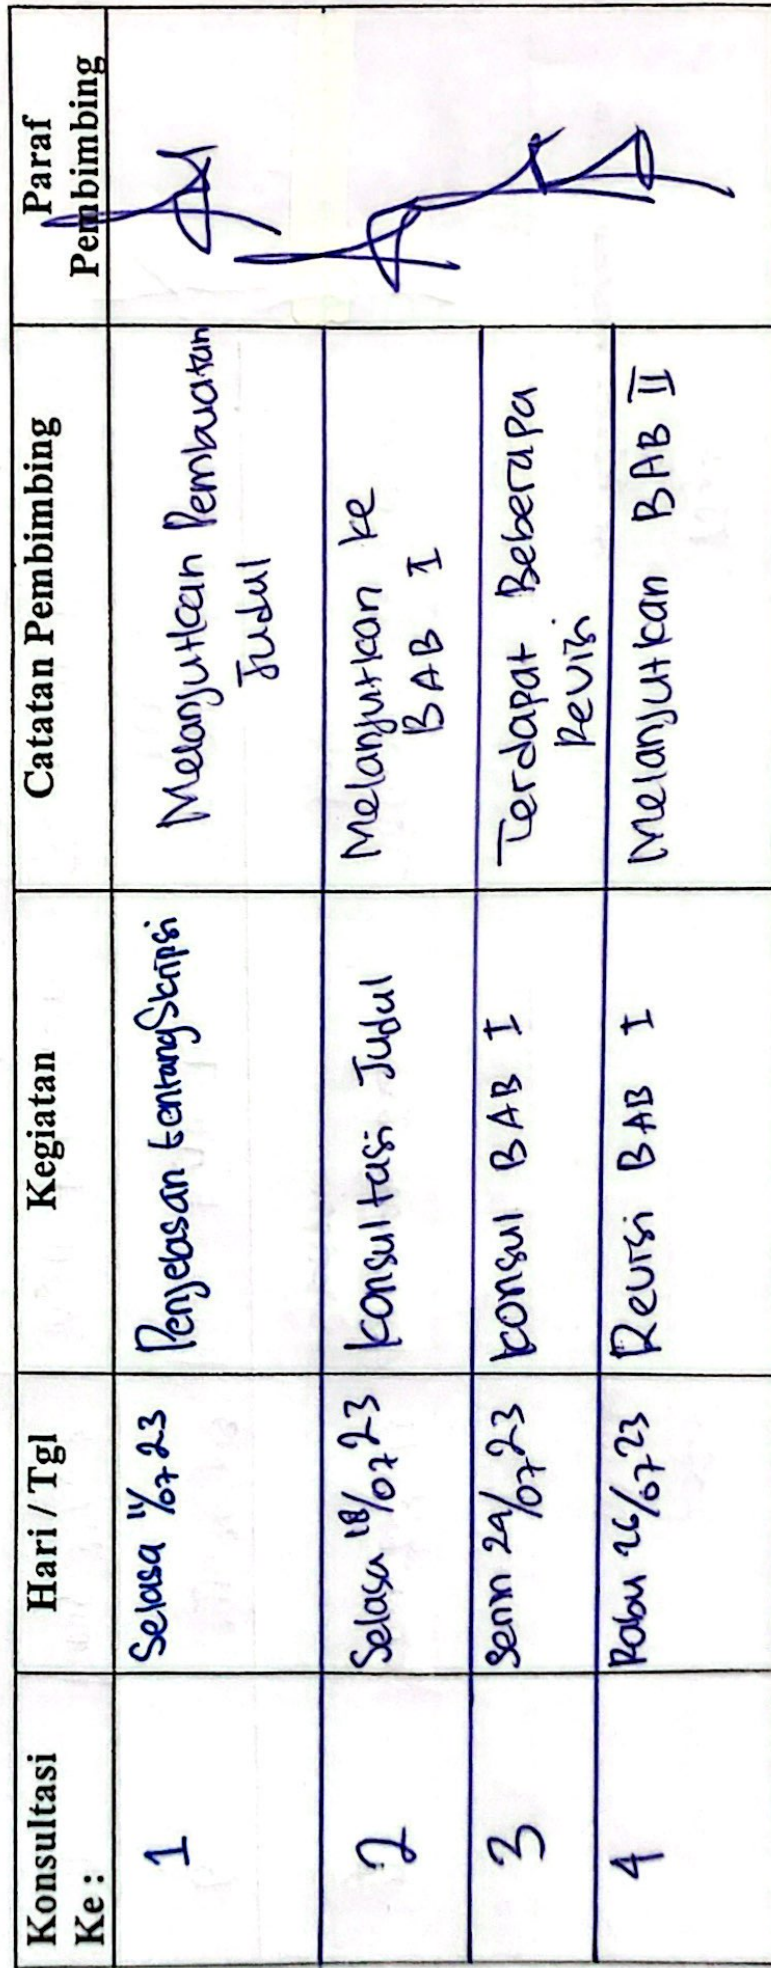 Konsultasi Ke : Hari / Tgl Kegiatan Catatan Pembimbing Paraf Pembimbing
1 Selasa 11/07 23 Penjelasan tentang Skripsi Melanjutkan Pembuatan
Judul
2 Selasa 18/07 23 Konsultasi Judul Melanjutkan ke
BAB I
3 Senin 24/07 23 Konsul BAB I Terdapat Beberapa
Revisi
4 Rabu 26/07 23 Revisi BAB I Melanjutkan BAB II